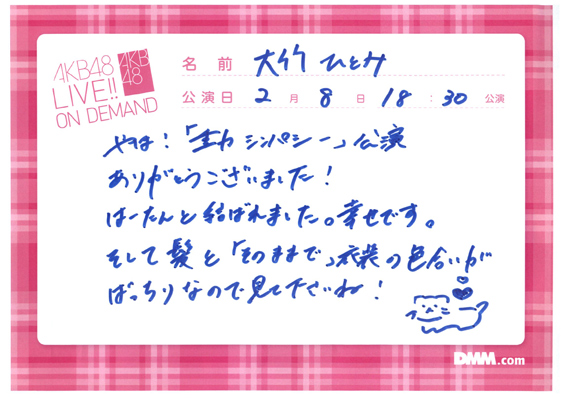 AKB48
LIVE!!
ON DEMAND
AKB
48
名前 大竹 ひとみ
公演日 2月 8日 18:30 公演
やほ!「重力シンパシー」公演
ありがとうございました!
はーたんと結ばれました。幸せです。
そして髪と「そのままで」衣装の色合いが
ばっちりなので見て下さいね!
DMM.com